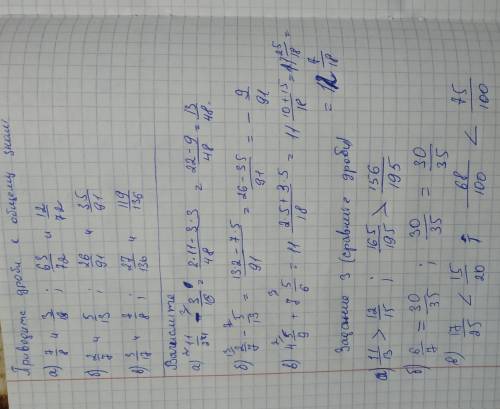 Приведите дроби к общему знам
а) 7/8 и 3/18 ; 63/72 и 12/72
б) 2/7 и 5/13 ; 26/91 и 35/91
в) 3/17 и 7/8 ; 27/136 и 119/136
Вычислите
а) 11/24 - 3/16 = (2·11-3·3)/48 = (22-9)/48 = 13/48.
б) 2/7 - 5/13 = (13·2-7·5)/91 = (26-35)/91 = - 9/91
в) 4 5/9 + 7 5/6 = 11 (2·5+3·5)/18 = 11 (10+15)/18 = 11 25/18 =
= 12 7/18
Задание 3 (сравните дроби)
а) 11/13 > 12/15 ; 165/195 > 156/195
б) 6/7 = 30/35 ; 30/35 = 30/35
в) 17/25 < 15/20 ; 68/100 < 75/100